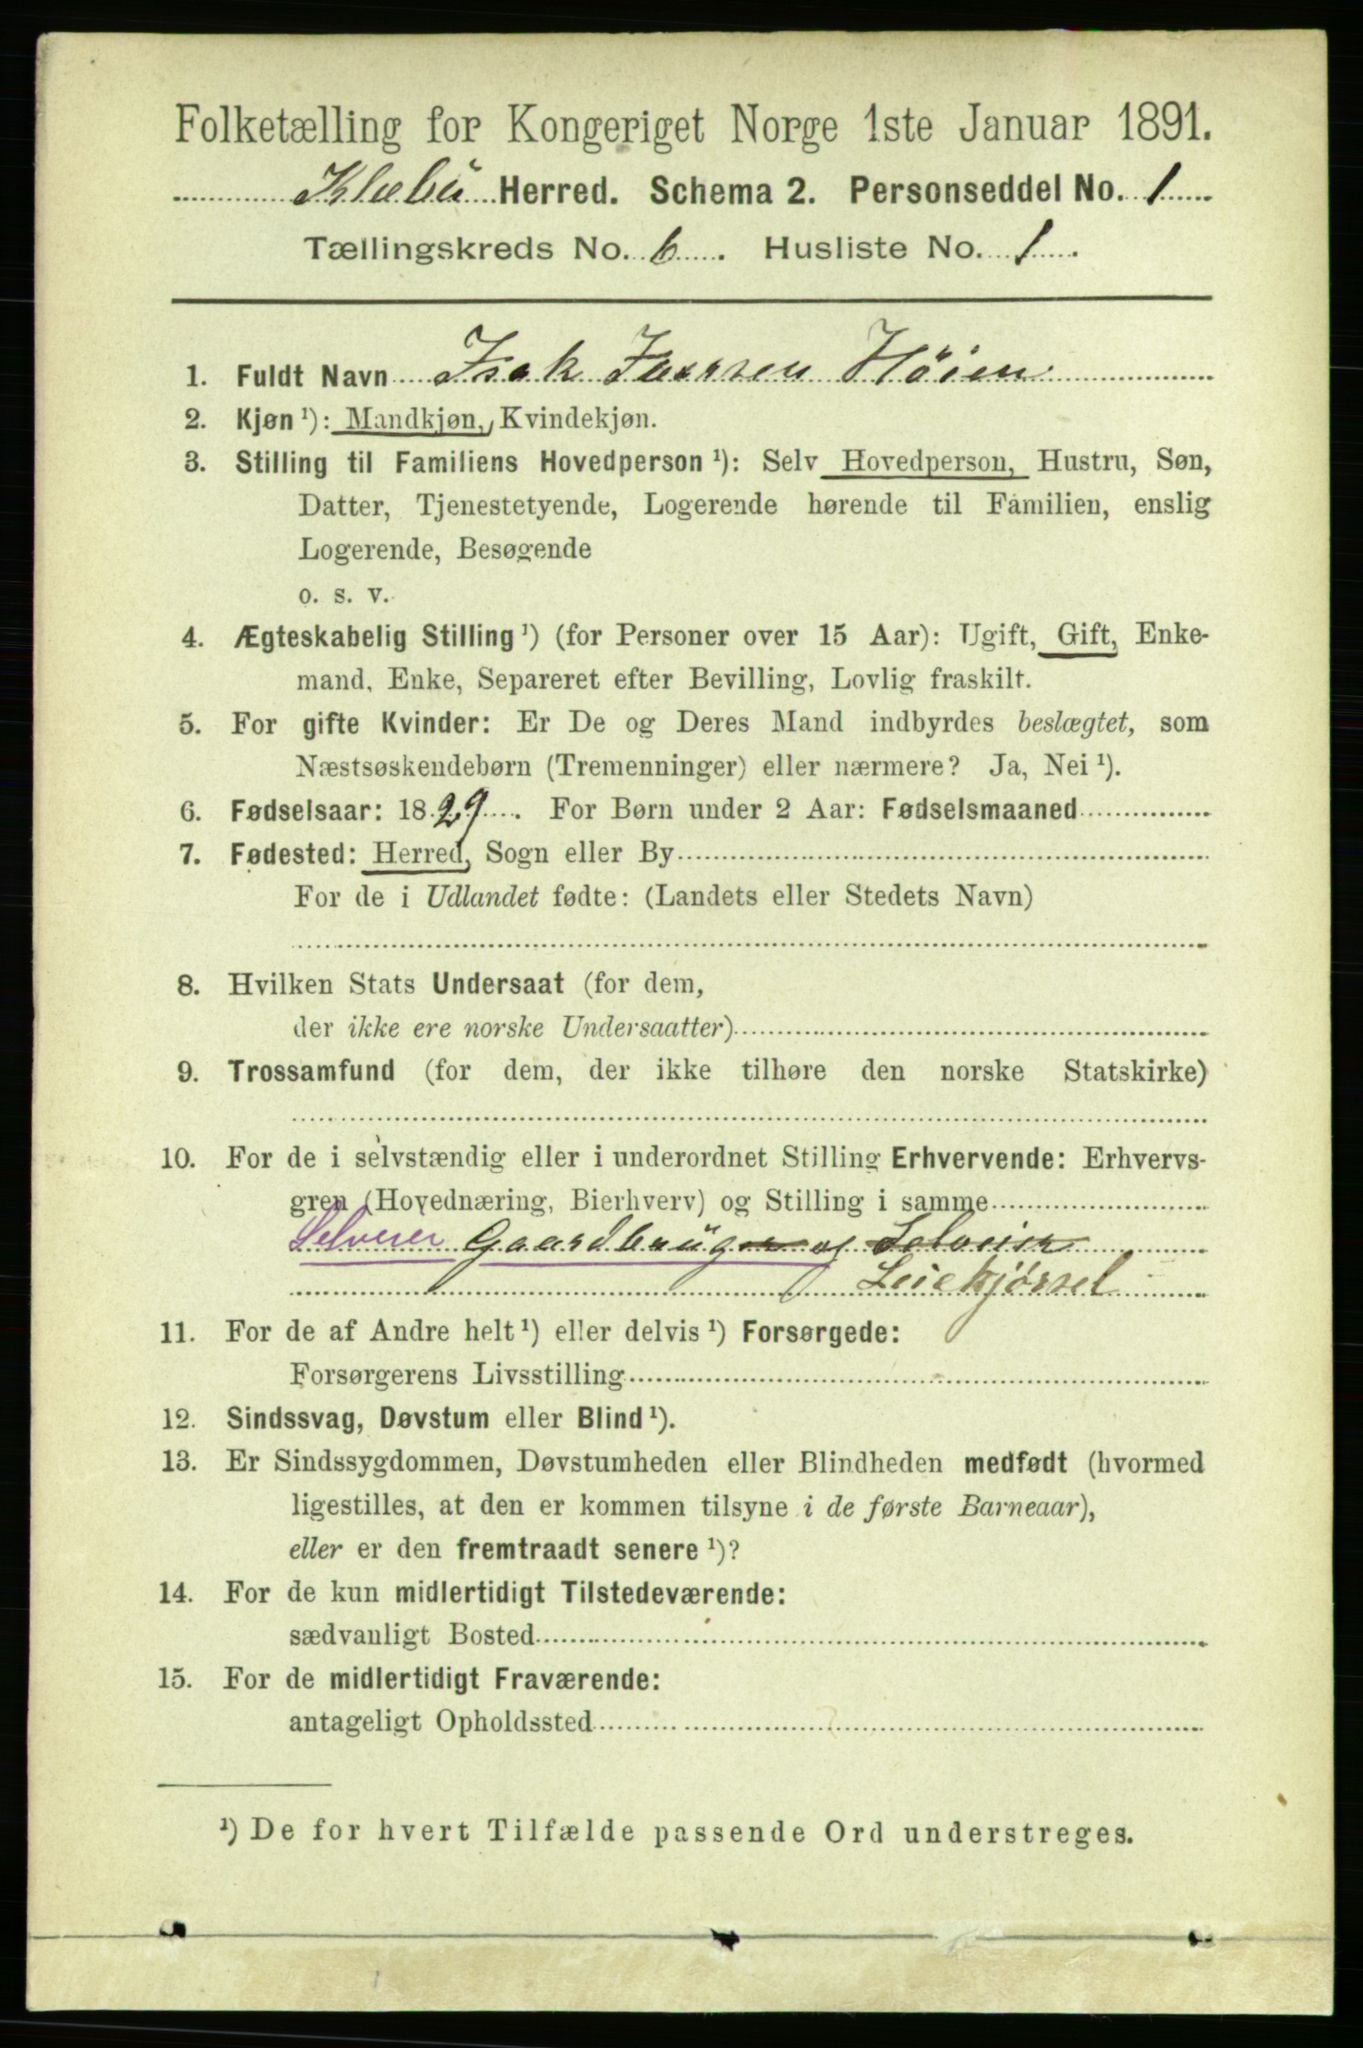 Folketælling for Kongeriget Norge 1ste Januar 1891.
Klæbü Herred. Schema 2. Personseddel No. 1
Tællingskreds No. 6. Husliste No. 1.
1. Fuldt Navn Isak Höien
2. Kjøn ¹): Mandkjøn, Kvindekjøn.
3. Stilling til Familiens Hovedperson ¹): Selv Hovedperson, Hustru, Søn,
Datter, Tjenestetyende, Logerende hørende til Familien, enslig
Logerende, Besøgende
o. s. v.
4. Ægteskabelig Stilling ¹) (for Personer over 15 Aar): Ugift, Gift, Enke-
mand, Enke, Separeret efter Bevilling, Lovlig fraskilt.
5. For gifte Kvinder: Er De og Deres Mand indbyrdes beslægtet, som
Næstsøskendebørn (Tremenninger) eller nærmere? Ja, Nei ¹).
6. Fødselsaar: 1829. For Børn under 2 Aar: Fødselsmaaned
7. Fødested: Herred, Sogn eller By
For de i Udlandet fødte: (Landets eller Stedets Navn)
8. Hvilken Stats Undersaat (for dem,
der ikke ere norske Undersaatter)
9. Trossamfund (for dem, der ikke tilhøre den norske Statskirke)
10. For de i selvstændig eller i underordnet Stilling Erhvervende: Erhvervs-
gren (Hovednæring, Bierhverv) og Stilling i samme
Selveier Gaardbrüger og Selveier
Leiekjørsel
11. For de af Andre helt ¹) eller delvis ¹) Forsørgede:
Forsørgerens Livsstilling
12. Sindssvag, Døvstum eller Blind ¹).
13. Er Sindssygdommen, Døvstumheden eller Blindheden medfødt (hvormed
ligestilles, at den er kommen tilsyne i de første Barneaar),
eller er den fremtraadt senere ¹)?
14. For de kun midlertidigt Tilstedeværende:
sædvanligt Bosted
15. For de midlertidigt Fraværende:
antageligt Opholdssted
¹) De for hvert Tilfælde passende Ord understreges.